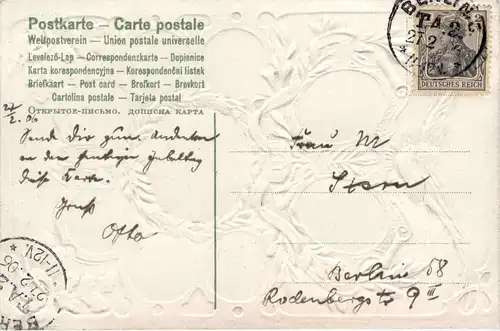 Postkarte – Carte postale
Weltpostverein – Union postale universelle
Levelező-Lap – Correspondenzkarte – Dopisnice
Karta korespondencyjna – Korespondenčni listek
Briefkaart – Post card – Brefkort – Brevkort
Cartolina postale – Tarjeta postal
Открытое-письмо. дописна карта
27/2. 06
Sende Dir zum Andenken
an den heutigen Geburtstag
diese Karte.
Gruß
Otto
BERLIN
T.A.2.
27.2.
DEUTSCHES REICH
Frau M
Stern
Berlin 58
Rodenbergstr 9 III
11-12V.
27.2.06
T.A.2.
BER